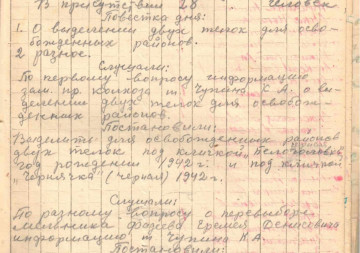 В присутствии 28 человек
Повестка дня:
1. О выделении двух телок для осво-
божденных районов.
2. разное.
Слушали:
По первому вопросу информацию
зам. пр. колхоза т. Чупина К.А. о вы-
делении двух телок для освобож-
денных районов.
Постановили:
Выделить для освобожденных районов
двух телок по кличкой „Белоголовка"
год рождения 1942 г. и под кличкой
„Чернячка" (черная) 1942 г.
Слушали:
По разному вопросу о перевыборе
мельника Еремея Денисовича
информацию т. Чупина К.А.
Постановили: